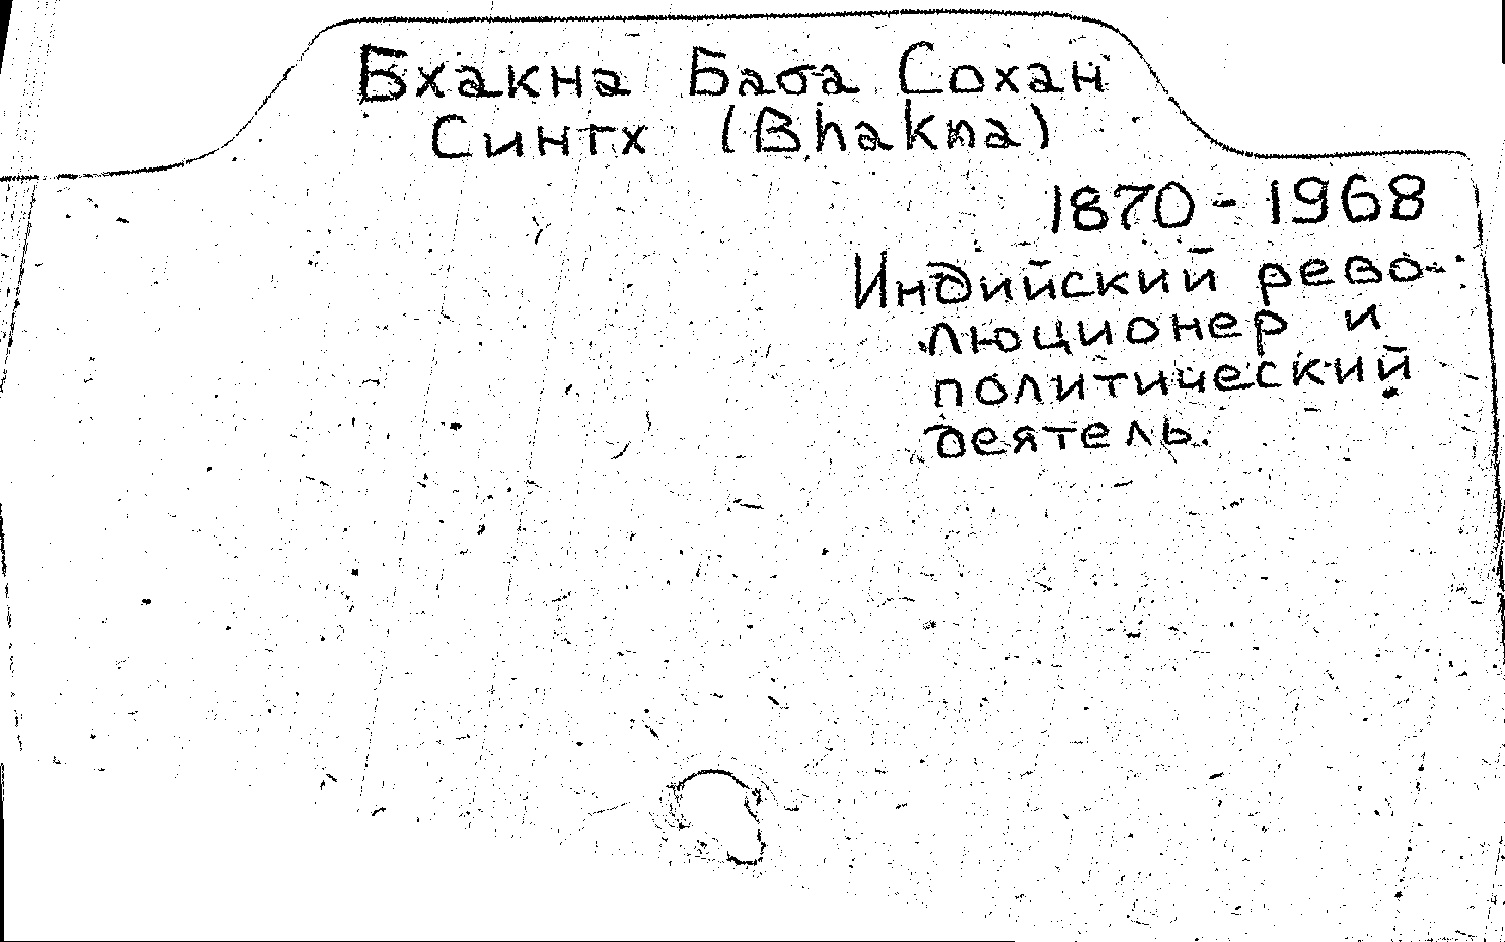 Бхакна Баба Сохан
Сингх (Bhakna)
1870-1968
Индийский рево-
люционер и
политический
деятель.